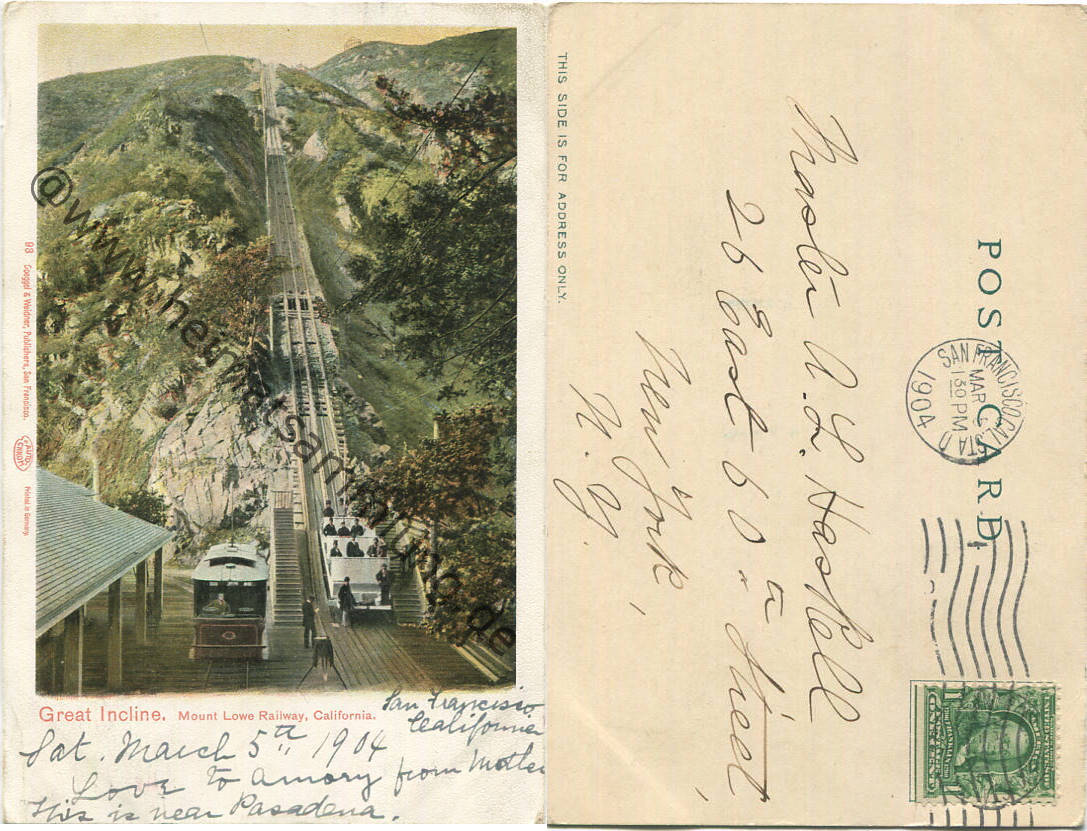 98 Goeggel & Weidner, Publishers, San Francisco.
AUTO CHROM
Printed in Germany.
@www.heimatsammlung.de
Great Incline. Mount Lowe Railway, California.
San Francisco
California
Sat. March 5th 1904
Love to Amory from Mother
This is near Pasadena.
THIS SIDE IS FOR ADDRESS ONLY.
POST CARD
SAN FRANCISCO, CAL.
MAR
130 PM
1904
STA D
Master A. L. Haskell
26 East 60th Street,
New York,
N.Y.